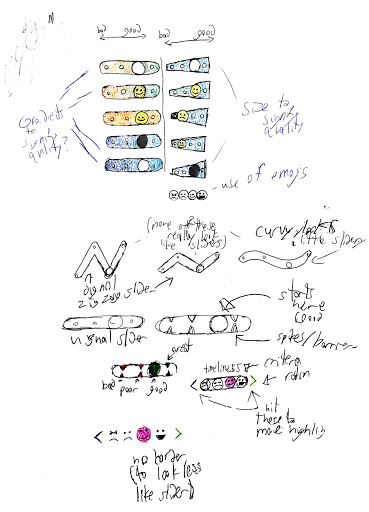 bad good bad good
Gradients
to
signify
quality?
size to
signify
quality
use of emojs
(none of these
really look
like sliders)
curvy
little slider
original
zig zag slider
starts
here
good
normal slider
spikes/barriers
great
bad poor good
timeliness
criteria
rating
hit
these to
move highlight
no border
(to look less
like slider)